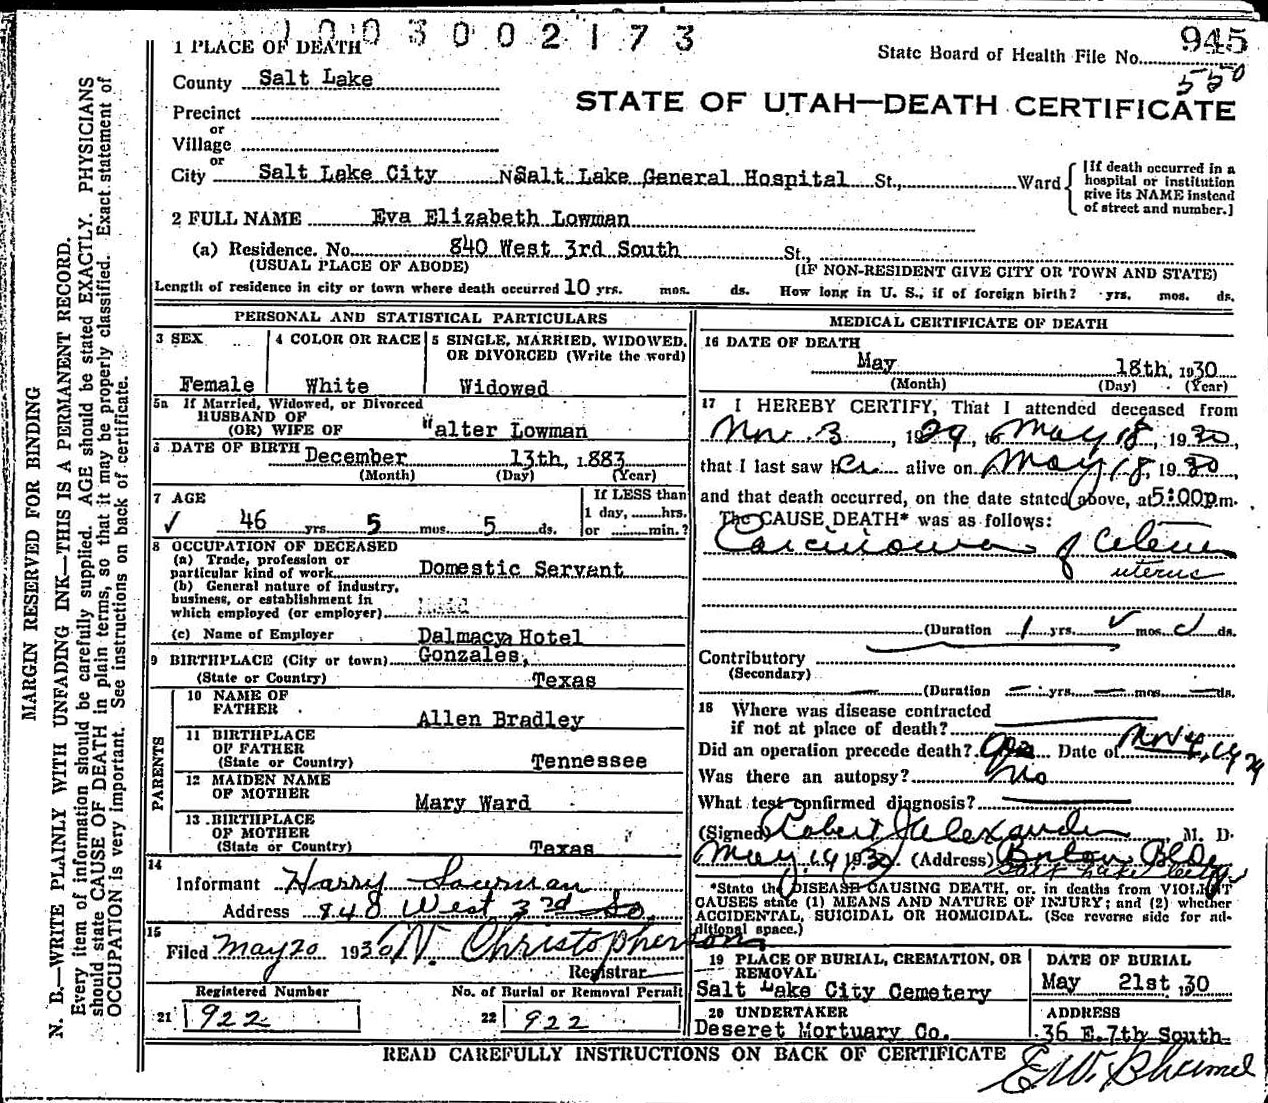 1003002173
1 PLACE OF DEATH
State Board of Health File No. 945
550
County Salt Lake
STATE OF UTAH—DEATH CERTIFICATE
Precinct
or
Village
or
City Salt Lake City N Salt Lake General Hospital St., Ward
[If death occurred in a hospital or institution give its NAME instead of street and number.]
2 FULL NAME Eva Elizabeth Lowman
(a) Residence. No. 840 West 3rd South St.,
(USUAL PLACE OF ABODE) (IF NON-RESIDENT GIVE CITY OR TOWN AND STATE)
Length of residence in city or town where death occurred 10 yrs. mos. ds. How long in U. S., if of foreign birth? yrs. mos. ds.
PERSONAL AND STATISTICAL PARTICULARS
3 SEX
Female
4 COLOR OR RACE
White
5 SINGLE, MARRIED, WIDOWED,
OR DIVORCED (Write the word)
Widowed
5a If Married, Widowed, or Divorced
HUSBAND OF
(OR) WIFE OF Walter Lowman
6 DATE OF BIRTH December 13th, 1883
(Month) (Day) (Year)
7 AGE
✓ 46 yrs. 5 mos. 5 ds.
If LESS than
1 day, hrs.
or min.?
8 OCCUPATION OF DECEASED
(a) Trade, profession or
particular kind of work Domestic Servant
(b) General nature of industry,
business, or establishment in
which employed (or employer)
(c) Name of Employer Dalmacy Hotel
9 BIRTHPLACE (City or town) Gonzales,
(State or Country) Texas
PARENTS
10 NAME OF
FATHER Allen Bradley
11 BIRTHPLACE
OF FATHER
(State or Country) Tennessee
12 MAIDEN NAME
OF MOTHER Mary Ward
13 BIRTHPLACE
OF MOTHER
(State or Country) Texas
14
Informant Harry Lowman
Address 848 West 3rd So.
15
Filed May 20 1930 N. Christopherson
Registrar
Registered Number
21 922
No. of Burial or Removal Permit
22 922
MEDICAL CERTIFICATE OF DEATH
16 DATE OF DEATH
May 18th, 1930
(Month) (Day) (Year)
17 I HEREBY CERTIFY, That I attended deceased from
Nov. 3, 1929, to May 18, 1930,
that I last saw her alive on May 18, 1930,
and that death occurred, on the date stated above, at 5:00p.m.
The CAUSE DEATH* was as follows:
Carcinoma of
uterus
(Duration 1 yrs. mos. ds.
Contributory
(Secondary)
(Duration — yrs. — mos. — ds.
18 Where was disease contracted
if not at place of death?
Did an operation precede death? yes Date of Nov 4, 1929
Was there an autopsy? No
What test confirmed diagnosis?
(Signed) Robert J Alexander M. D.
May 19 1930. (Address) Boston Bldg
Salt Lake City
*State the DISEASE CAUSING DEATH, or. in deaths from VIOLENT
CAUSES state (1) MEANS AND NATURE OF INJURY; and (2) whether
ACCIDENTAL, SUICIDAL OR HOMICIDAL. (See reverse side for ad-
ditional space.)
19 PLACE OF BURIAL, CREMATION, OR
REMOVAL
Salt Lake City Cemetery
DATE OF BURIAL
May 21st, 30
20 UNDERTAKER
Deseret Mortuary Co.
ADDRESS
36 E. 7th South
READ CAREFULLY INSTRUCTIONS ON BACK OF CERTIFICATE
MARGIN RESERVED FOR BINDING
N. B.—WRITE PLAINLY WITH UNFADING INK—THIS IS A PERMANENT RECORD.
Every item of information should be carefully supplied. AGE should be stated EXACTLY. PHYSICIANS
should state CAUSE OF DEATH in plain terms, so that it may be properly classified. Exact statement of
OCCUPATION is very important. See instructions on back of certificate.